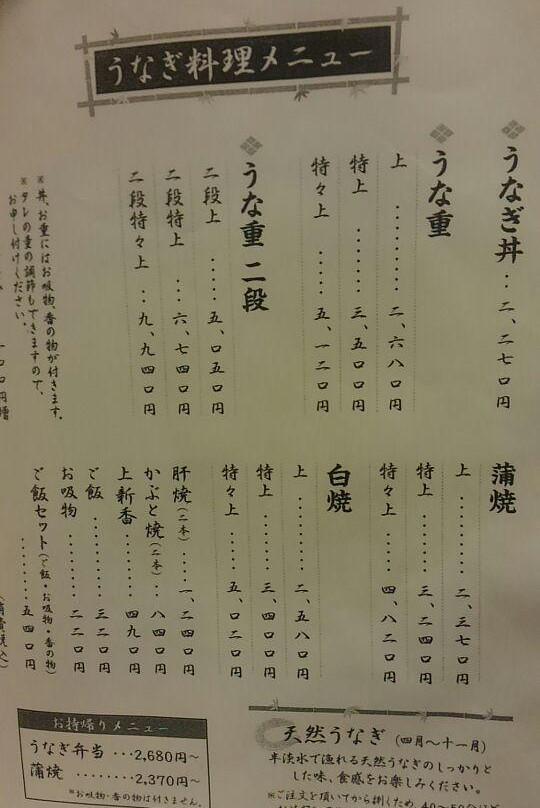 うなぎ料理メニュー
うなぎ丼‥二、二七〇円
うな重
上………二、六八〇円
特上……三、五〇〇円
特々上……五、一二〇円
うな重 二段
二段上……五、〇五〇円
二段特上…六、七四〇円
二段特々上‥九、九四〇円
※丼、お重にはお吸物、香の物が付きます。
※タレの量の調節もできますので、
お申し付けください。
蒲焼
上………二、三七〇円
特上………三、二四〇円
特々上……四、八二〇円
白焼
上………二、五八〇円
特上………三、四〇〇円
特々上……五、〇二〇円
肝焼(二本)……一、二四〇円
かぶと焼(二本)…八四〇円
上新香………四九〇円
ご飯………三二〇円
お吸物………二二〇円
ご飯セット(ご飯・お吸物・香の物)
………五四〇円
お持帰りメニュー
うなぎ弁当 …2,680円～
蒲焼 ………2,370円～
※お吸物・香の物は付きません。
天然うなぎ (四月～十一月)
半淡水で漁れる天然うなぎのしっかりと
した味、食感をお楽しみください。
※ご注文を頂いてから捌くため、40～50分ほど